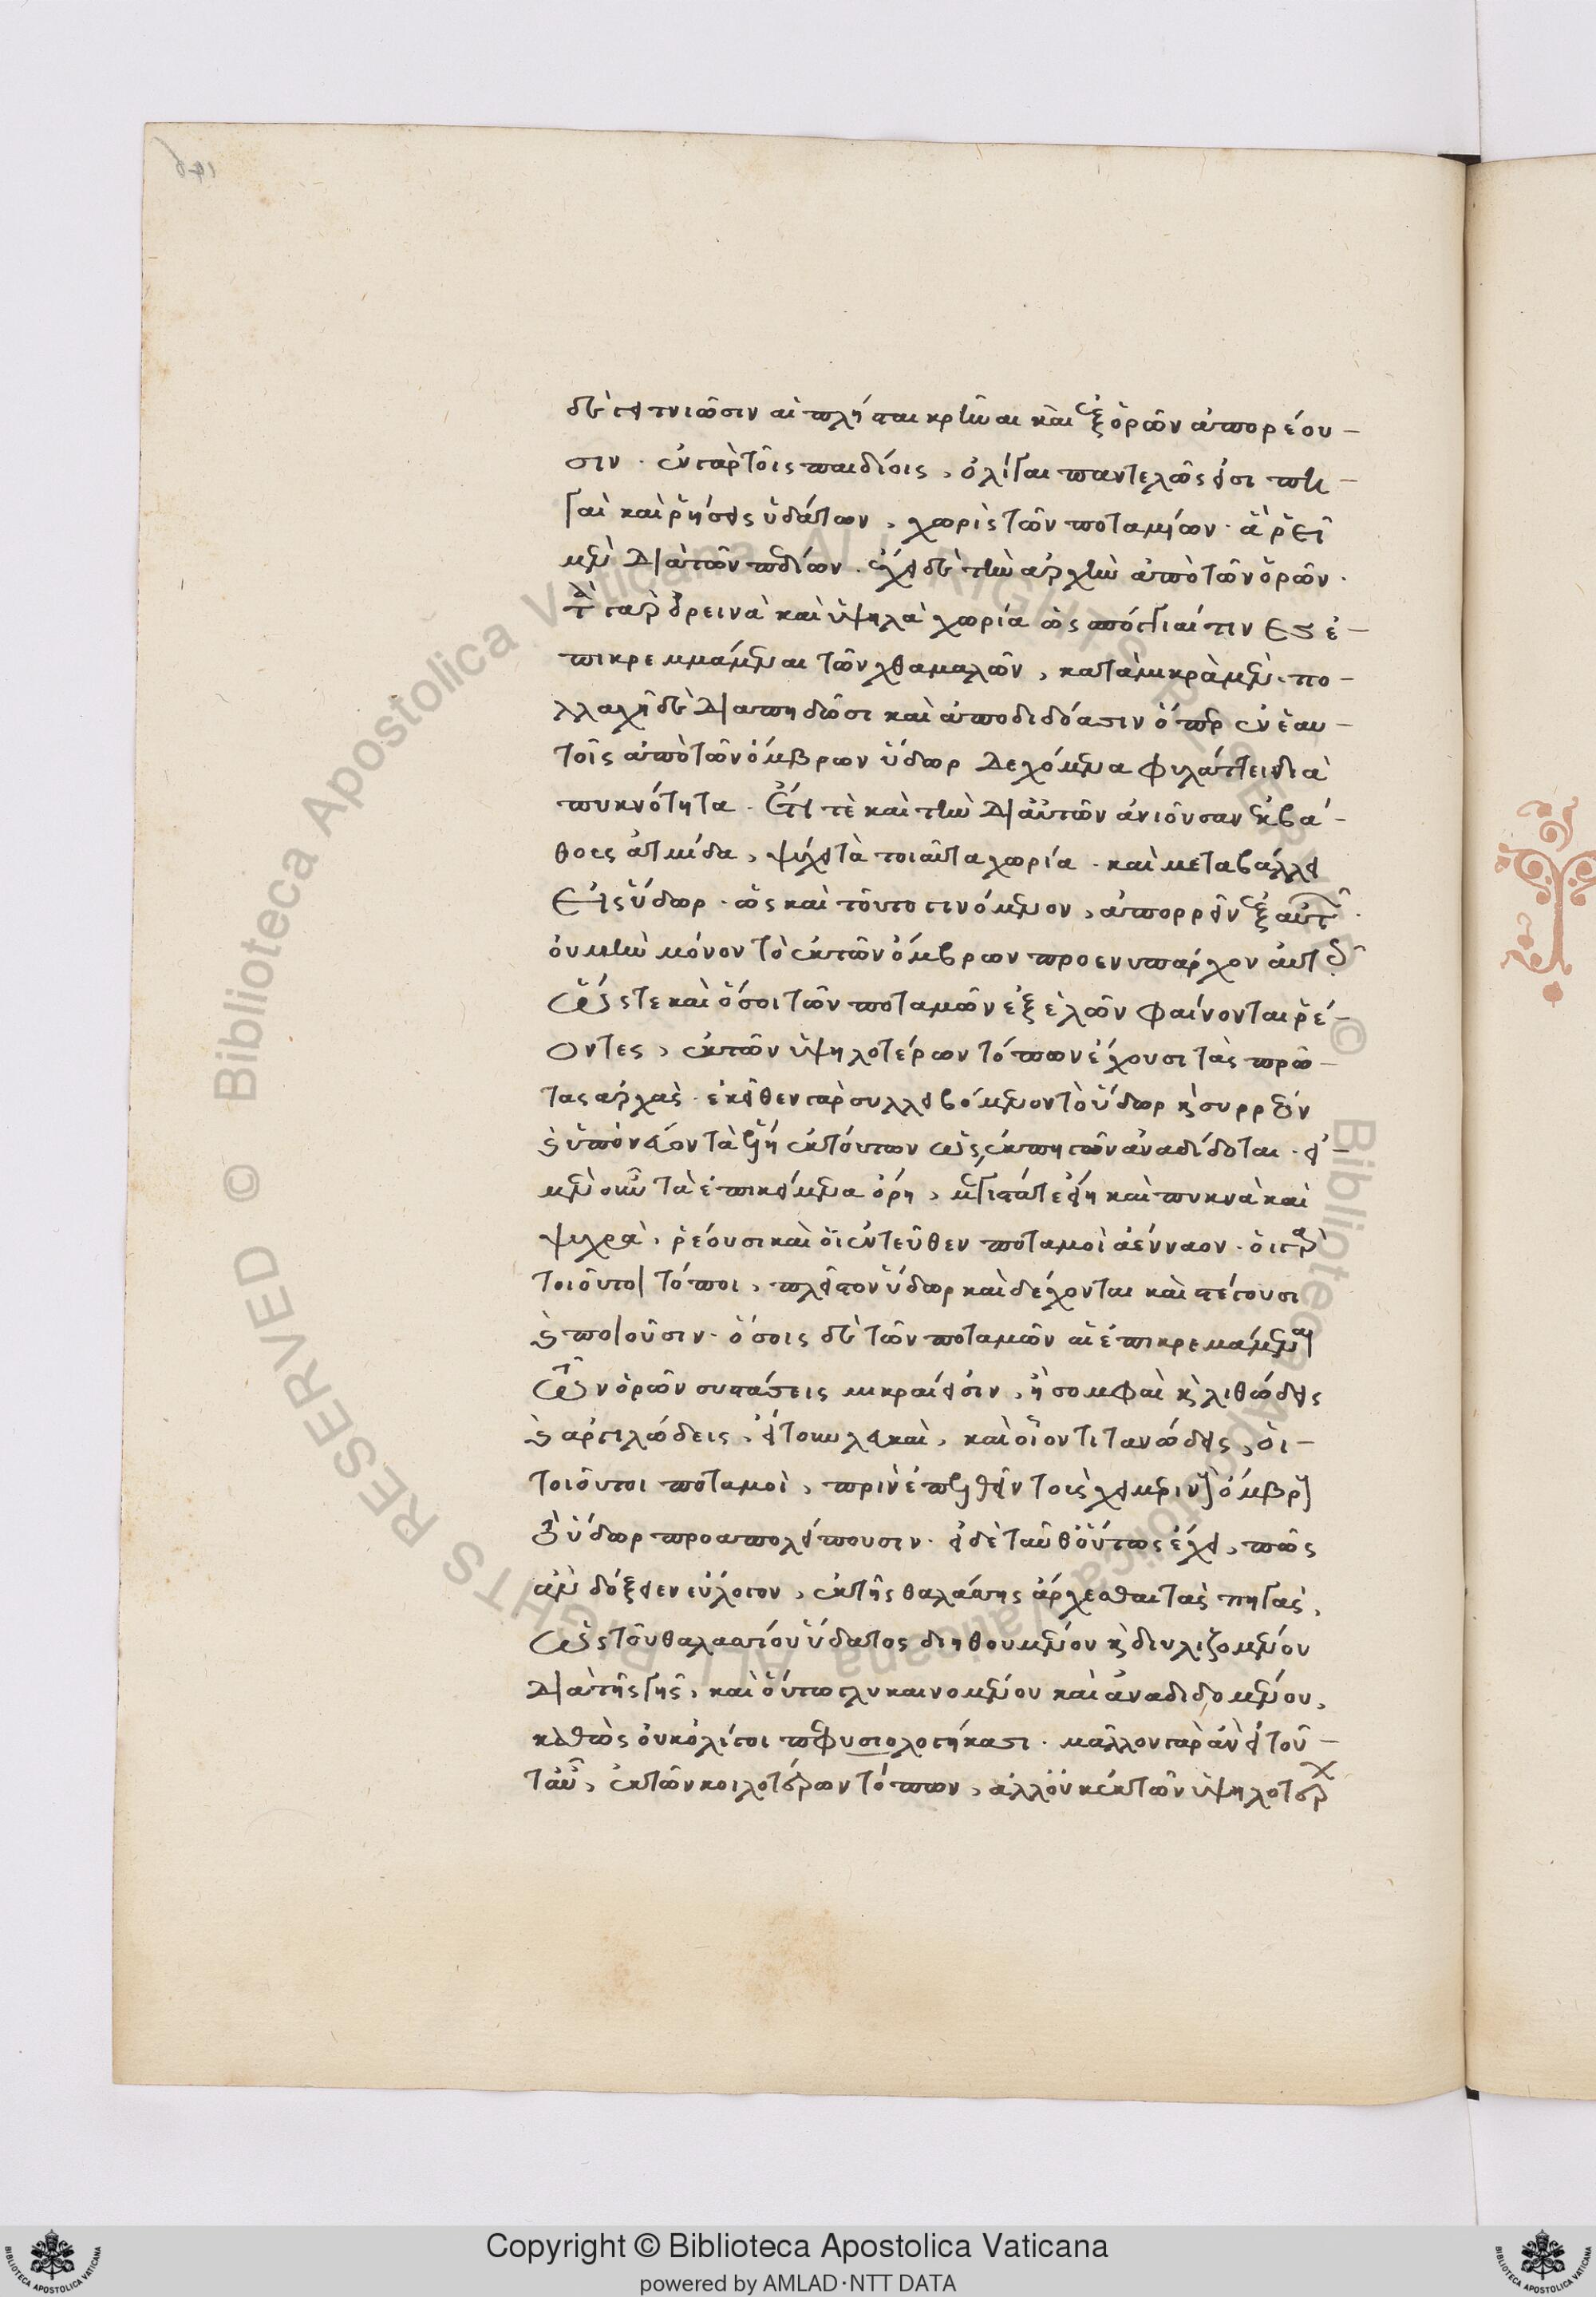 δὲ γειτνιῶσιν αἱ πλείσται κρῆναι καὶ ἐξ ὀρῶν ἀπορέου-
σιν. ἐν γὰρ τοῖς παιδίοις, ὀλίγαι παντελῶς εἰσι πη-
γαὶ καὶ ῥήσεις ὑδάτων, χωρὶς τῶν ποταμίων. ἃ ῥεῖ
μὲν διὰ τῶν πεδίων. ἔχει δὲ τὴν ἀρχὴν ἀπὸ τῶν ὀρῶν.
τὰ γὰρ ὀρεινὰ καὶ ὑψηλὰ χωρία ὡς σπόγγιαί τινες ἐ-
πικρεμμάμεναι τῶν χθαμαλῶν, κατὰ μικρὰ μὲν πο-
λλαχῆ δὲ διαπηδῶσι καὶ ἀποδιδόασιν ὅπερ ἐν ἑαυ-
τοῖς ἀπὸ τῶν ὄμβρων ὕδωρ δεχόμενα φυλάττει διὰ
πυκνότητα. ἔτι τὲ καὶ τὴν δι' αὐτῶν ἀνιοῦσαν ἐκ βά-
θους ἀτμίδα, ψύχει τὰ τοιαῦτα χωρία. καὶ μεταβάλλει
εἰς ὕδωρ. ὡς καὶ τοῦτο γινόμενον, ἀπορρεῖν ἐξ αὐτῶν.
οὐ μὴν μόνον τὸ ἐκ τῶν ὄμβρων προενυπάρχον αὐτοῖς
ὥστε καὶ ὅσοι τῶν ποταμῶν ἐξ ἑλῶν φαίνονται ῥέ-
οντες, ἐκ τῶν ὑψηλοτέρων τόπων ἔχουσι τὰς πρώ-
τας ἀρχάς. ἐκεῖθεν γὰρ συλλειβόμενον τὸ ὕδωρ καὶ συρρέον
καὶ ὑπονέον τὰ ἕλη ἐκ τούτων ὡς ἐκ πηγῶν ἀναδίδοται. εἰ
μὲν οὖν τὰ ἐπικείμενα ὄρη, μέγιστά τε εἴη καὶ πυκνὰ καὶ
ψυχρὰ, ῥέουσι καὶ οἱ ἐντεῦθεν ποταμοὶ ἀένναον. οἱ γὰρ
τοιοῦτοι τόποι, πλεῖστον ὕδωρ καὶ δέχονται καὶ στέγουσι
καὶ ποιοῦσιν. ὅσοις δὲ τῶν ποταμῶν αἱ ἐπικρεμάμεναι
τῶν ὀρῶν συστάσεις μικραί εἰσιν, ἢ σομφαὶ καὶ λιθώδεις
καὶ ἀργιλώδεις, εἴτουν γλεικαὶ, καὶ οἷον τιτανώδεις, οἱ
τοιοῦτοι ποταμοὶ, πρὶν ἐπελθεῖν τοὺς χειμερινοὺς ὄμβρους
τὸ ὕδωρ προαπολείπουσιν. εἰ δὲ ταῦθ' οὕτως ἔχει, πῶς
ἂν δόξειεν εὔλογον, ἐκ τῆς θαλάσσης ἄρχεσθαι τὰς πηγὰς,
ὡς τοῦ θαλασσίου ὕδατος διηθουμένου καὶ διυλιζομένου
διὰ τῆς γῆς, καὶ οὕτω γλυκαινομένου καὶ ἀναδιδομένου,
καθὼς οὐκ ὀλίγοι πεφυσιολογήκασι. μᾶλλον γὰρ ἂν εἰ τοῦ-
τ' ἦν, ἐκ τῶν κοιλοτέρων τόπων, ἀλλ' οὐκ ἐκ τῶν ὑψηλοτέρων
Copyright © Biblioteca Apostolica Vaticana
powered by AMLAD·NTT DATA